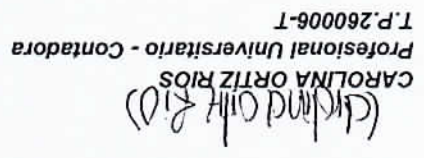 Carolina Ortiz Rios
CAROLINA ORTIZ RIOS
Profesional Universitario - Contadora
T.P.260006-T